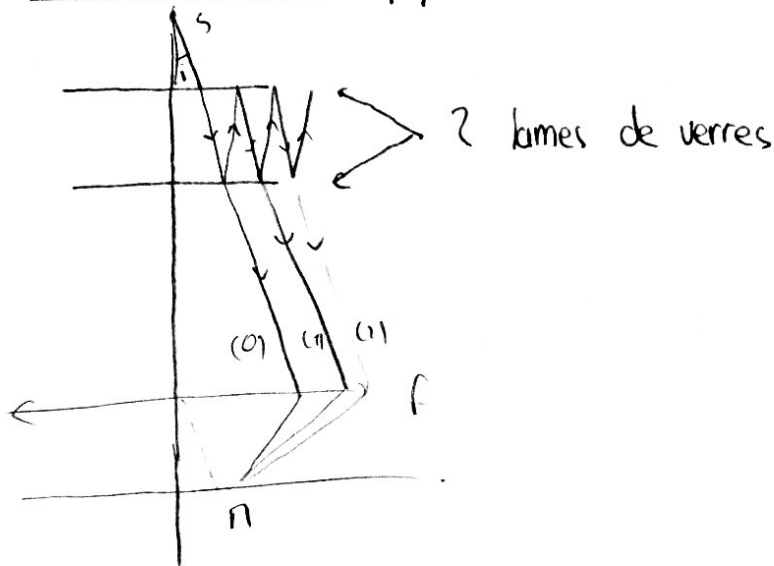 S
i
2 lames de verres
(0) (1) (2)
M